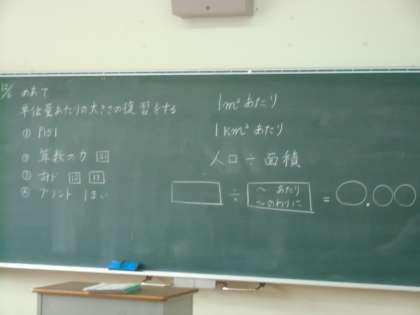 めあて
単位量あたりの大きさの復習をする
① P101
② 算数の力
③
④ プリント 1まい
1m²あたり
1km²あたり
人口÷面積
÷ ～あたり ～のわりに = .